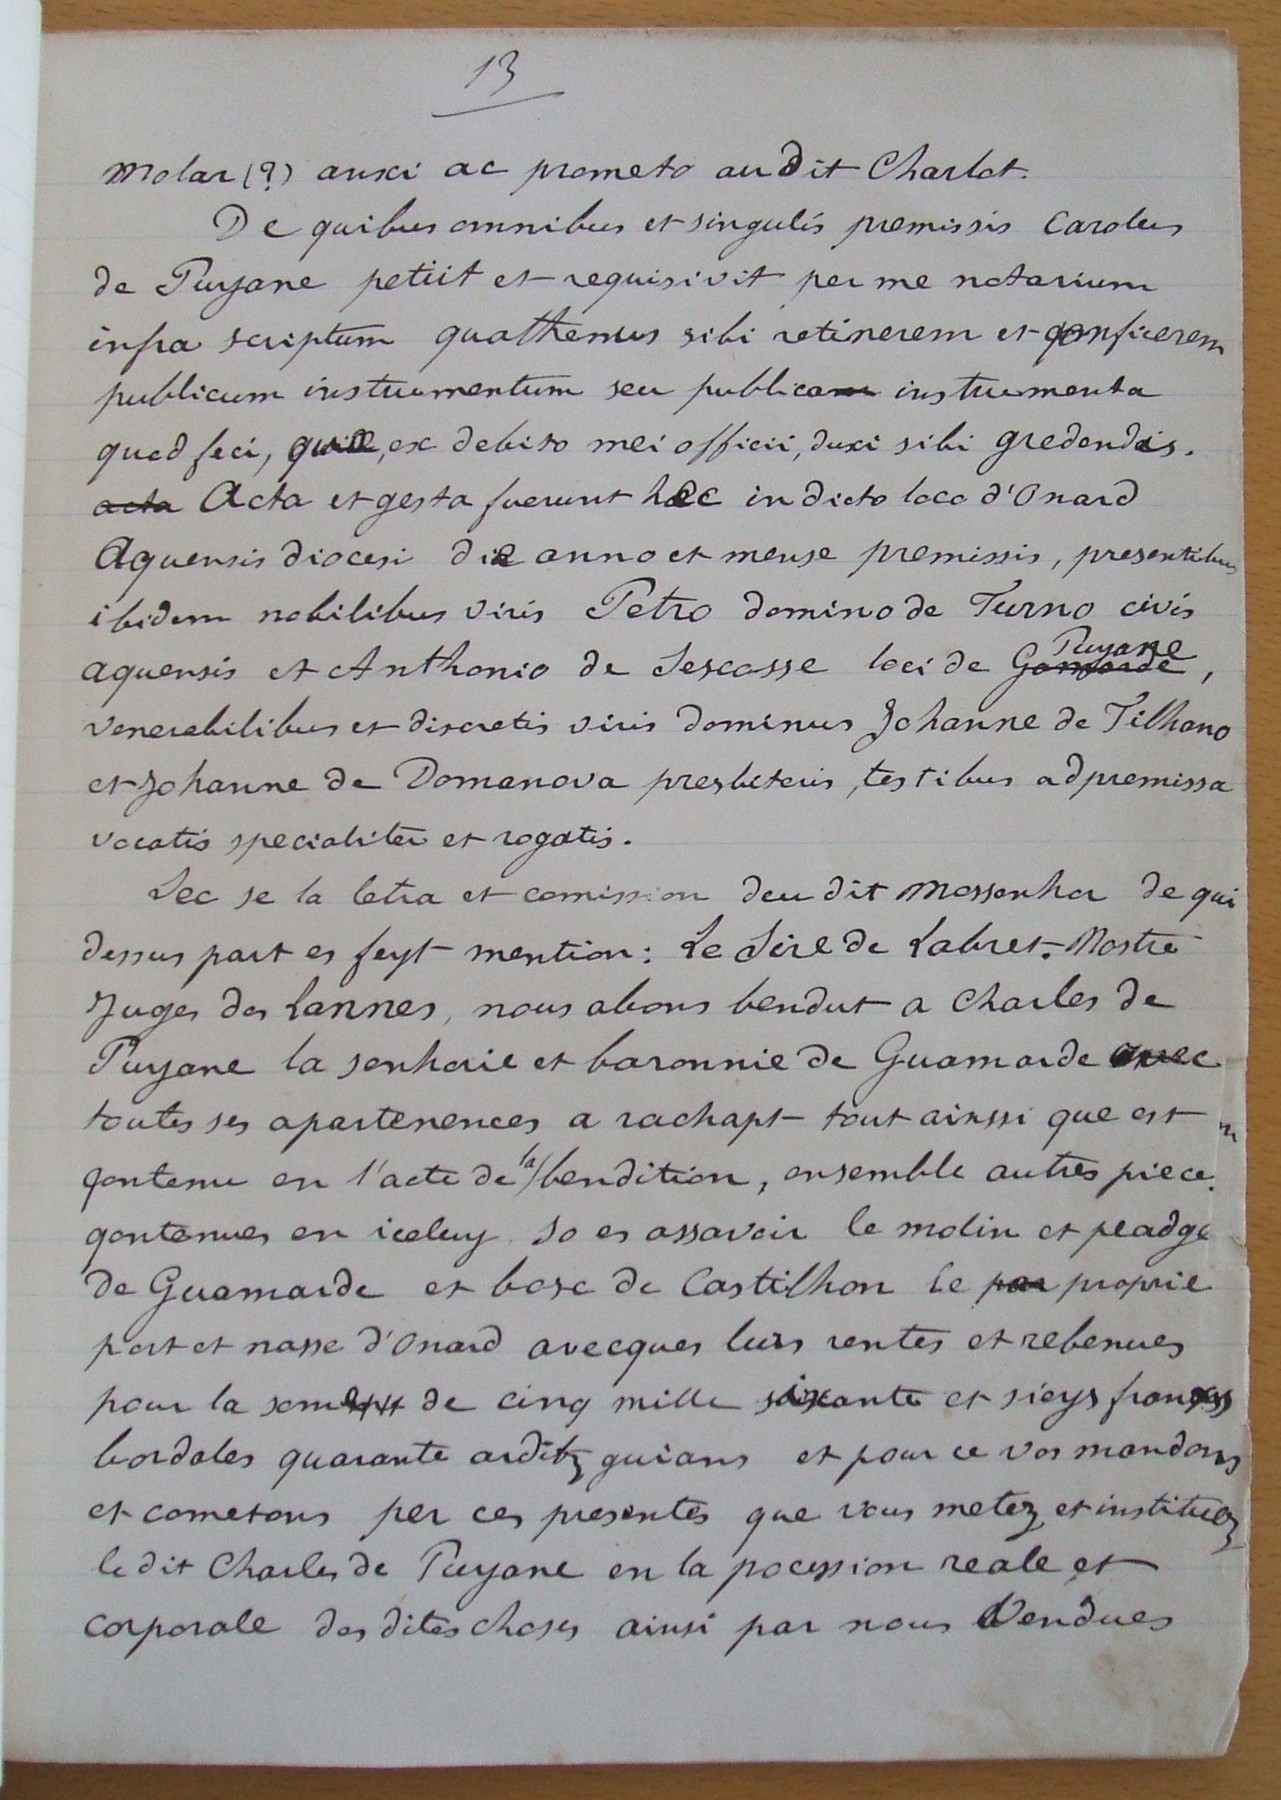 13
molar (?) auxi ac prometo au dit Charlot.
De quibus omnibus et singulis premissis Carolus
de Puyane petiit et requisivit per me notarium
infra scriptum quathenus sibi retinerem et conficerem
publicum instrumentum seu publica instrumenta
quod feci, ex debito mei officii, duxi sibi gredendis.
acta Acta et gesta fuerunt hec in dicto loco d'Onard
Aquensis diocesi die anno et mense premissis, presentibus
ibidem nobilibus viris Petro domino de Turno civis
aquensis et Anthonio de Sescosse loci de Gamarde Puyane,
venerabilibus et discretis viris dominus Johanne de Tilhano
et Johanne de Domanova presbiteris, testibus ad premissa
vocatis specialiter et rogatis.
Sec se la letra et comission deu dit Mossenhor de qui
dessus part es feyt mention : Le Sire de Labret. Nostre
Juges des Lannes, nous abons bendut a Charles de
Puyane la senhorie et baronnie de Guamarde avec
toutes ses apartenences a rachapt tout ainssi que est
qontenu en l'acte de la bendition, ensemble autres piece
qontenues en iceluy so es assavoir le molin et peadge
de Guamarde et bosc de Castilhon le par proprie
port et nasse d'Onard avecques lurs rentes et rebenues
pour la some de cinq mille sixante et sieys franxs
bordales quarante arditz guians et pour ce vos mandons
et cometons per ces presentes que vous metez et instituez
le dit Charles de Puyane en la pocession reale et
corporale des dites choses ainsi par nous Vendues